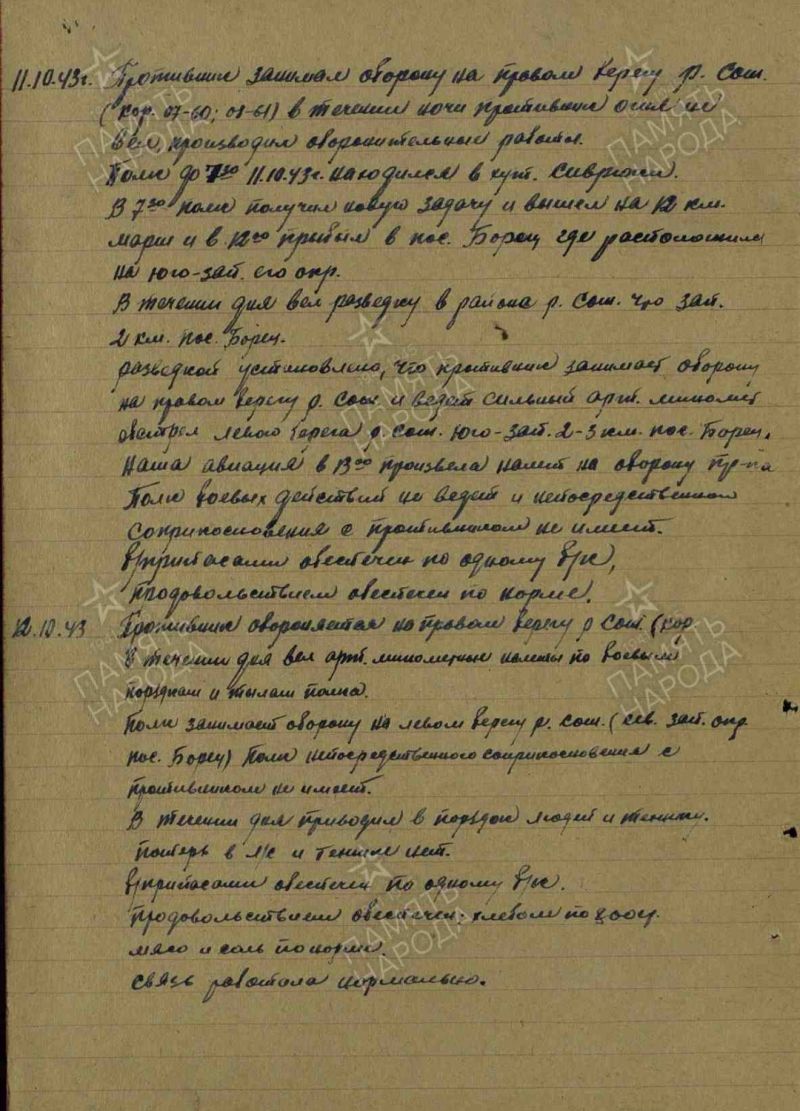 11.10.43г. Противник занимал оборону на правом берегу р. Сож.
(кор. 07-60; 08-61) в течении ночи противник огня не
вел, производил оборонительные работы.
Полк до 7³⁰ 11.10.43г. находился в
В 7³⁰ полк получил новую задачу и вышел на 12 км.
марш и в 12⁰⁰ прибыл в пос. Борец где расположился
на юго-зап. его окр.
В течении дня вел разведку в района р. Сож. что зап.
2 км. пос. Борец.
разведкой установлено, что противник занимает оборону
на правом берегу р. Сож и ведет сильный арт. миномет
обстрел левого берега р. Сож. юго-зап. 2-3 км. пос. Борец.
Наша авиация в 13⁰⁰ произвела налет на оборону пр-ка
Полк боевых действий не ведет и непосредственного
соприкосновения с противником не имеет.
б/припасами обеспечен по одному б/к,
продовольствием обеспечен по норме.
12.10.43 Противник обороняется на правом берегу р Сож. (кор.
В течении дня вел арт. минометные налеты по боевым
порядкам и тылам полка.
Полк занимает оборону на левом берегу р. Сож. (сев. зап. окр
пос. Борец) Полк непосредственного соприкосновения с
противником не имеет.
В течении дня приводил в порядок людей и технику.
Потерь в л/с и технике нет.
б/припасами обеспечен по одному б/к.
продовольствием обеспечен: хлебом по 800г.
мясо и соль по норме.
Связь работала нормально.
ПАМЯТЬ НАРОДА